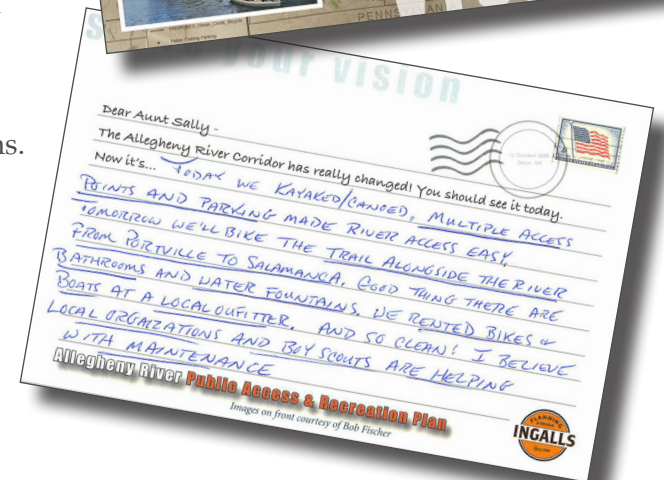 PENNSYLVANIA
Public Fishing Parking
ns.
your vision
Dear Aunt Sally -
The Allegheny River Corridor has really changed! You should see it today.
Now it's... TODAY WE KAYAKED/CANOED, MULTIPLE ACCESS
POINTS AND PARKING MADE RIVER ACCESS EASY,
TOMORROW WE'LL BIKE THE TRAIL ALONGSIDE THE RIVER
FROM PORTVILLE TO SALAMANCA. GOOD THING THERE ARE
BATHROOMS AND WATER FOUNTAINS. WE RENTED BIKES &
BOATS AT A LOCAL OUFITTER. AND SO CLEAN! I BELIEVE
LOCAL ORGAIZATIONS AND BOY SCOUTS ARE HELPING
WITH MAINTENANCE
Allegheny River Public Access & Recreation Plan
Images on front courtesy of Bob Fischer
PLANNING
INGALLS